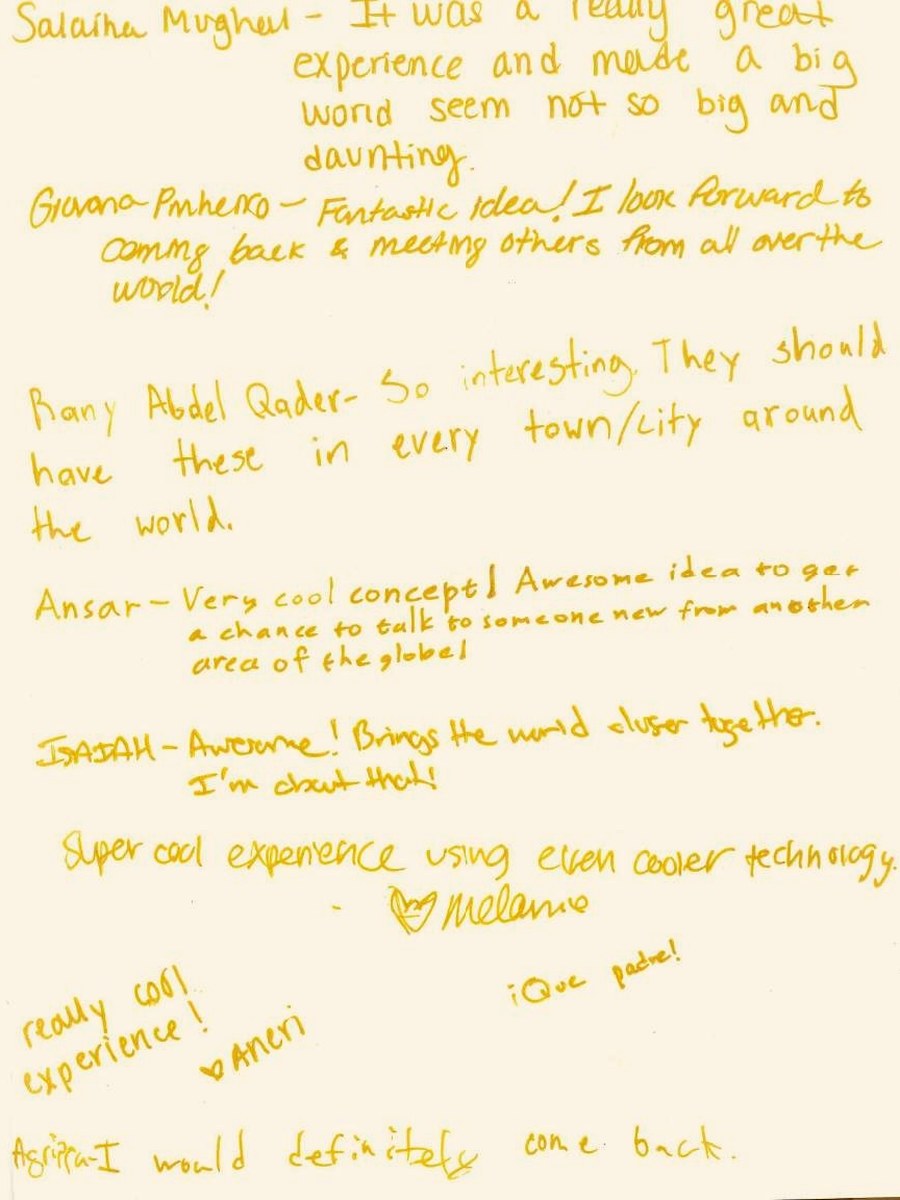 Salaiha Mughal - It was a really great
experience and made a big
world seem not so big and
daunting.
Giovana Pinheiro - Fantastic idea! I look forward to
coming back & meeting others from all over the
world!
Rany Abdel Qader- So interesting. They should
have these in every town/city around
the world.
Ansar - Very cool concept! Awesome idea to get
a chance to talk to someone new from another
area of the globe!
ISAIAH - Awesome! Brings the world closer together.
I'm about that!
Super cool experience using even cooler technology.
- Melanie
¡Que padre!
really cool
experience!
Aneri
Agrippa-I would definitely come back.